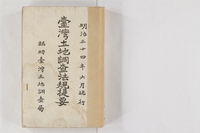 明治三十四年六月編行
臺灣土地調查法規提要
臨時臺灣土地調查局